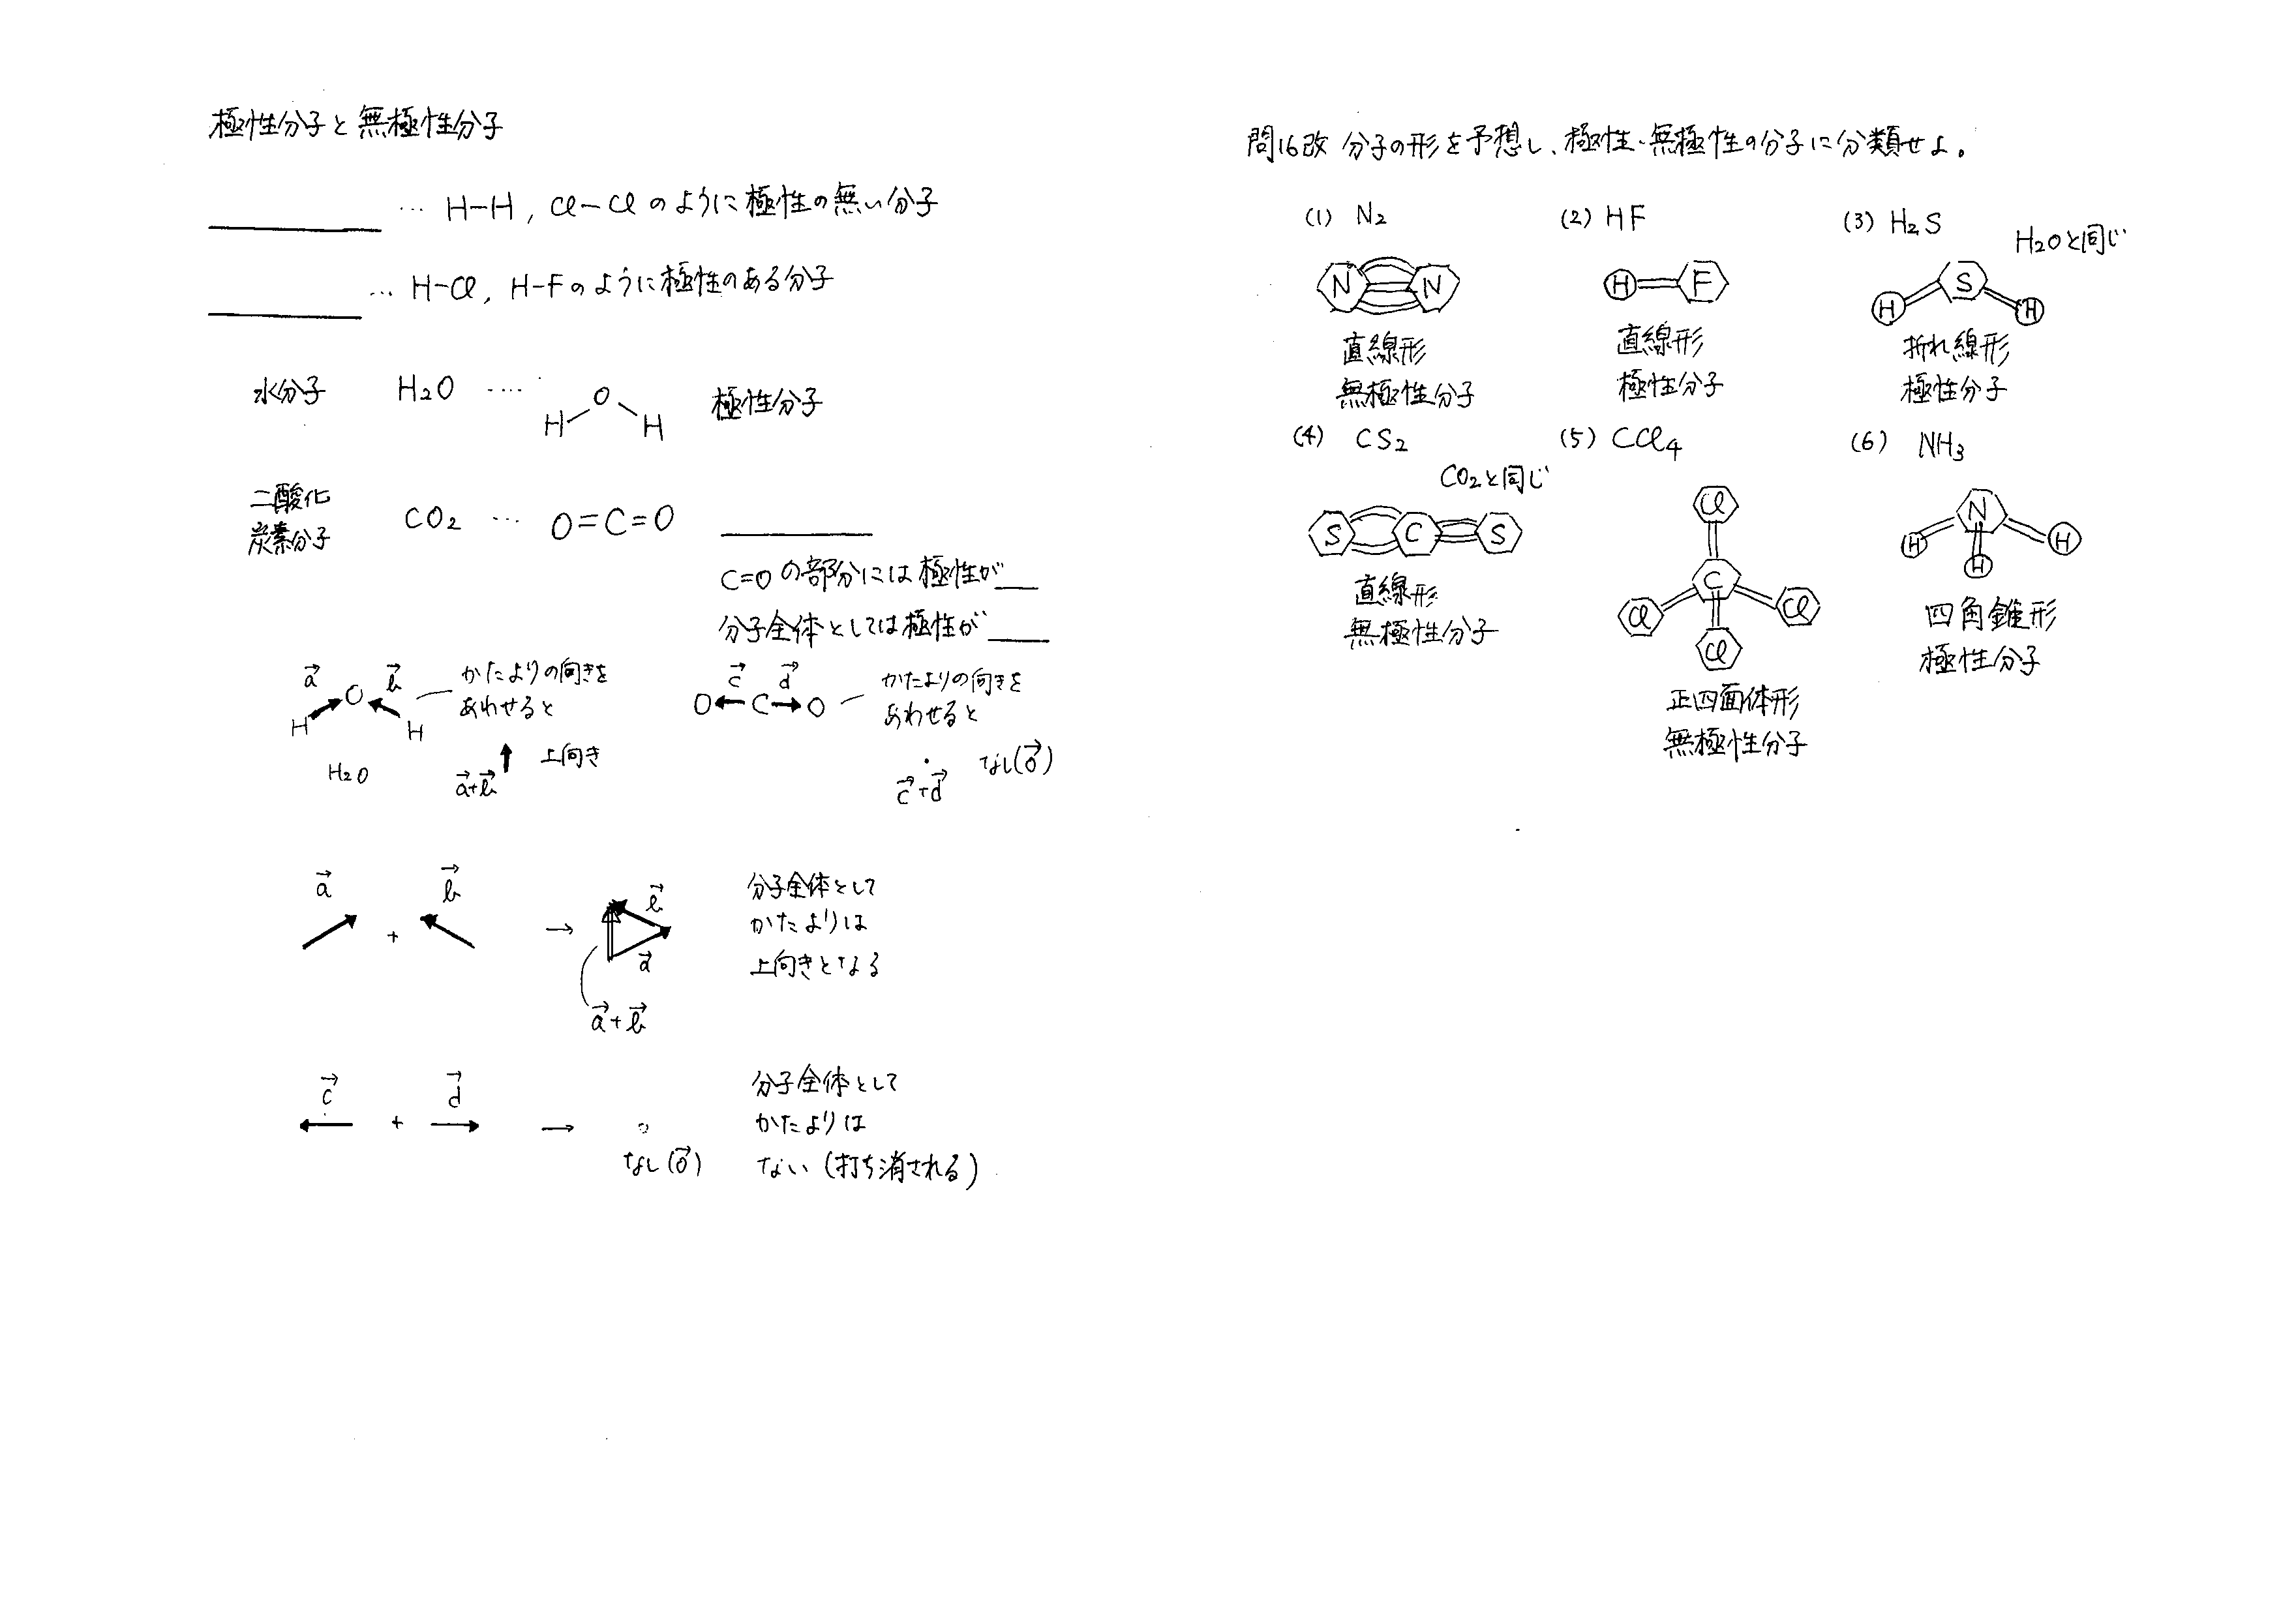 極性分子と無極性分子
______ … H−H, Cl−Clのように極性の無い分子
______ … H−Cl, H−Fのように極性のある分子
水分子 H₂O …. H O H 極性分子
二酸化
炭素分子 CO₂ … O=C=O ______
C=Oの部分には極性が__
分子全体としては極性が___
a⃗ b⃗ かたよりの向きを
H O H あわせると
a⃗+b⃗ 上向き
H₂O
c⃗ d⃗ かたよりの向きを
O C O あわせると
c⃗+d⃗ なし(0⃗)
a⃗ + b⃗ → b⃗ a⃗
a⃗+b⃗
分子全体として
かたよりは
上向きとなる
c⃗ + d⃗ →
なし(0⃗)
分子全体として
かたよりは
ない(打ち消される)
問16改 分子の形を予想し、極性・無極性の分子に分類せよ。
(1) N₂
N N
直線形
無極性分子
(2) HF
H F
直線形
極性分子
(3) H₂S
H₂Oと同じ
H S H
折れ線形
極性分子
(4) CS₂
CO₂と同じ
S C S
直線形
無極性分子
(5) CCl₄
Cl
C
Cl Cl
Cl
正四面体形
無極性分子
(6) NH₃
N
H H
H
四角錐形
極性分子